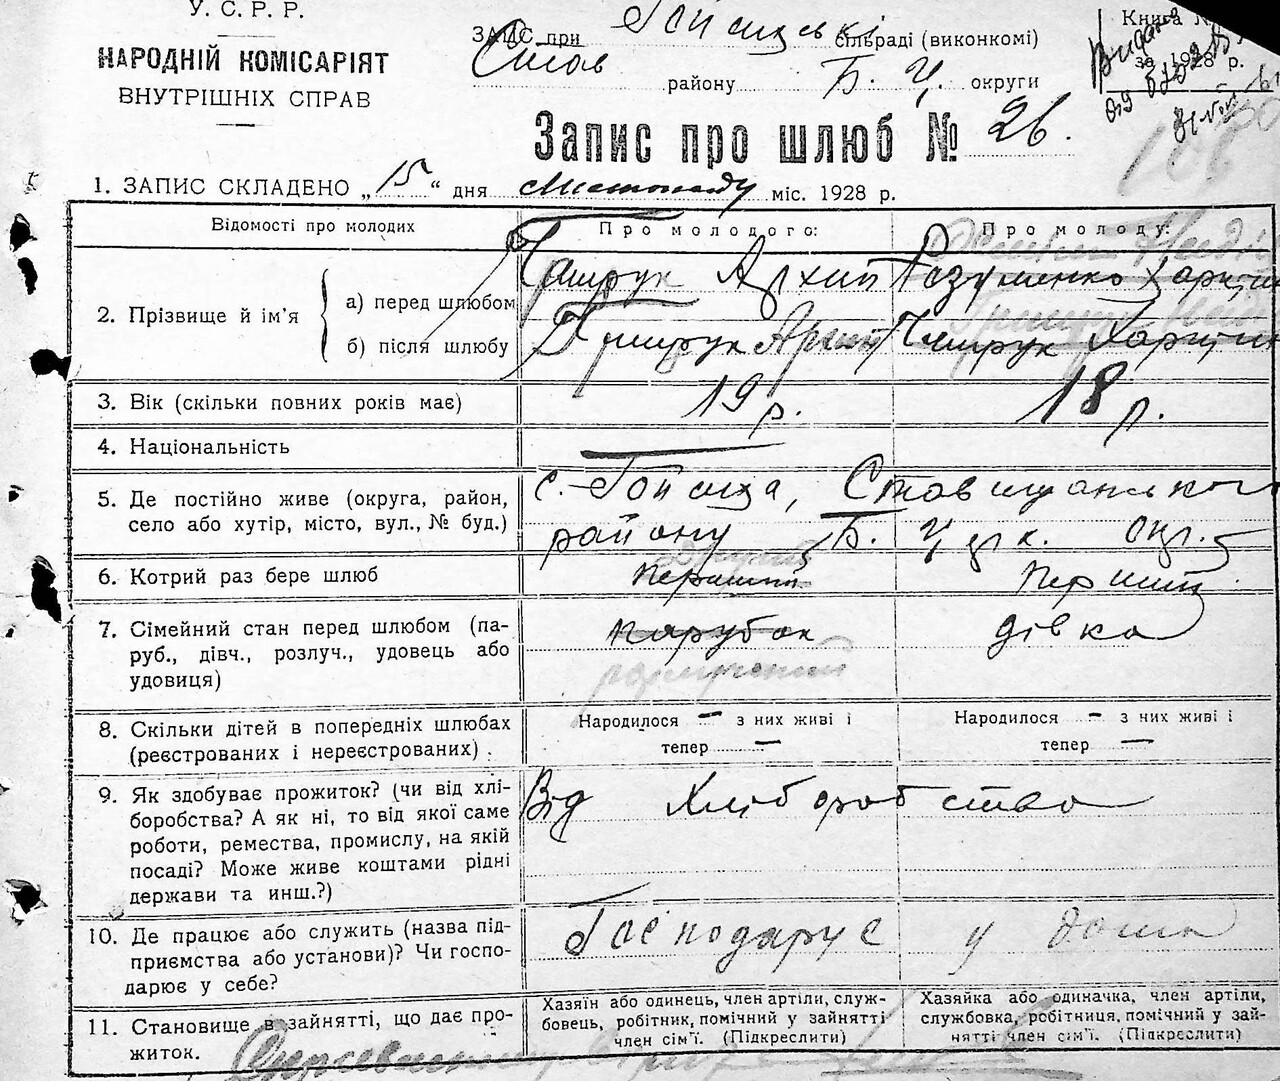 У. С. Р. Р.
НАРОДНІЙ КОМІСАРІЯТ
ВНУТРІШНІХ СПРАВ
ЗАПИС при сільраді (виконкомі)
Став району Б. Ц. округи
Книга №
за 1928 р.
Запис про шлюб № 26.
1. ЗАПИС СКЛАДЕНО „15“ дня Листопаду міс. 1928 р.
Відомості про молодих
Про молодого:
Про молоду:
2. Прізвище й ім'я
а) перед шлюбом
Архип
Розуменко
б) після шлюбу
Архип
3. Вік (скільки повних років має)
19 р.
18 р.
4. Національність
5. Де постійно живе (округа, район,
село або хутір, місто, вул., № буд.)
с. Гойсиха, Ставищанського
району Б. Церк. окр.
6. Котрий раз бере шлюб
перший
перший
7. Сімейний стан перед шлюбом (па-
руб., дівч., розлуч., удовець або
удовиця)
парубок
дівка
8. Скільки дітей в попередніх шлюбах
(реєстрованих і нереєстрованих)
Народилося – з них живі і
тепер —
Народилося – з них живі і
тепер —
9. Як здобуває прожиток? (чи від хлі-
боробства? А як ні, то від якої саме
роботи, ремества, промислу, на якій
посаді? Може живе коштами рідні
держави та инш.?)
Від Хліборобства
10. Де працює або служить (назва під-
приємства або установи)? Чи госпо-
дарює у себе?
Господарує у дома
11. Становище в зайнятті, що дає про-
житок.
Хазяїн або одинець, член артіли, служ-
бовець, робітник, помічний у зайнятті
член сім'ї. (Підкреслити)
Хазяйка або одиначка, член артіли,
службовка, робітниця, помічний у зай-
нятті член сім'ї. (Підкреслити)